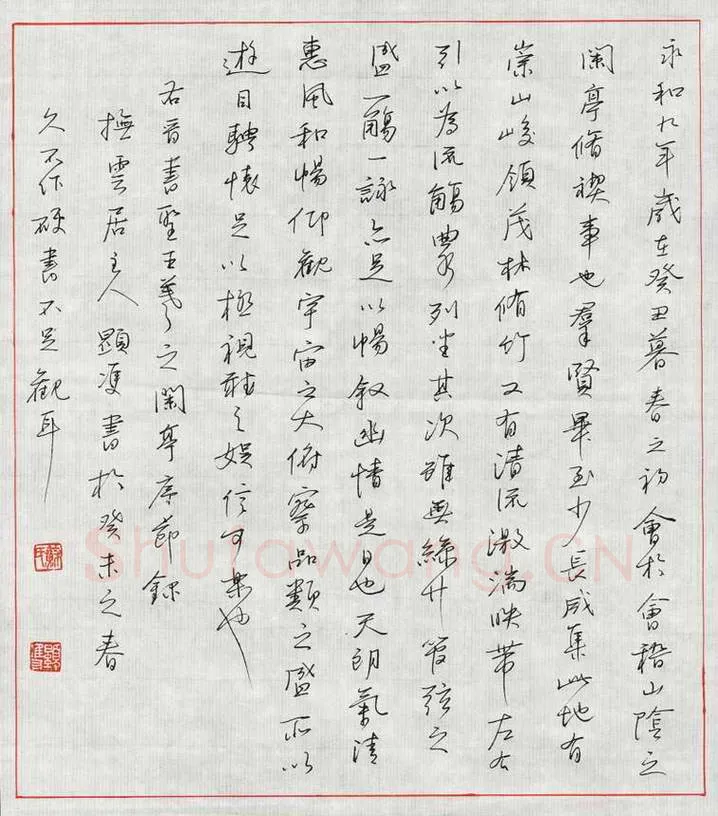 永和九年歲在癸丑暮春之初會於會稽山陰之
蘭亭脩禊事也羣賢畢至少長咸集此地有
崇山峻領茂林脩竹又有清流激湍映帶左右
引以為流觴曲水列坐其次雖無絲竹管弦之
盛一觴一詠亦足以暢敘幽情是日也天朗氣清
惠風和暢仰觀宇宙之大俯察品類之盛所以
遊目騁懷足以極視聽之娛信可樂也
右晉書聖王羲之蘭亭序節錄
撫雲居主人顯書於癸未之春
久不作硬書不足觀耳
蘇氏
Shufawang.CN